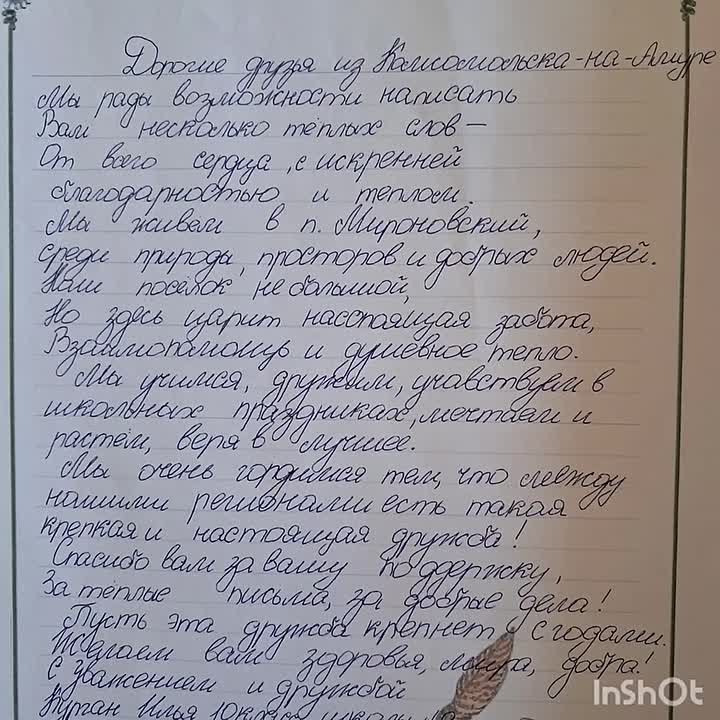 Дорогие друзья из Комсомольска-на-Амуре
Мы рады возможности написать
Вам несколько тёплых слов —
От всего сердца, с искренней
благодарностью и теплом.
Мы живём в п. Мироновский,
среди природы, просторов и добрых людей.
Наш посёлок небольшой,
Но здесь царит насстоящая забота,
Взаимопомощь и душевное тепло.
Мы учимся, дружим, учавствуем в
школьных праздниках, мечтаем и
растём, веря в лучшее.
Мы очень гордимся тем, что между
нашими регионами есть такая
крепкая и настоящая дружба!
Спасибо вам за вашу поддержку,
За тёплые письма, за добрые дела!
Пусть эта дружба крепнет с годами.
Желаем вам здоровья, мира, добра!
С уважением и дружбой
Курган Илья 10 класс
InShOt